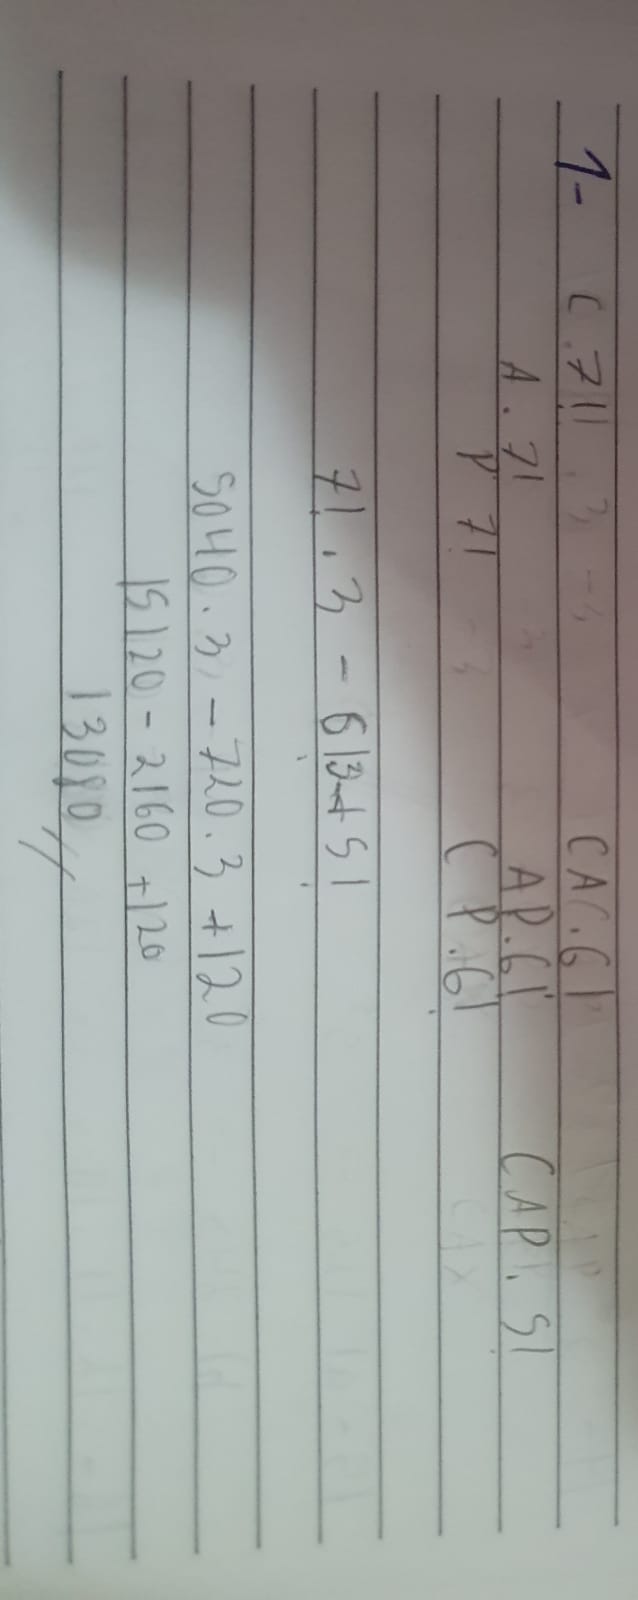 1- C.7! CAC.6!
A.7! AP.6! CAP.5!
P 7! CP.6!
7!.3 - 6!3+5!
5040.3 - 720.3 +120
15120 - 2160 +120
13080 //